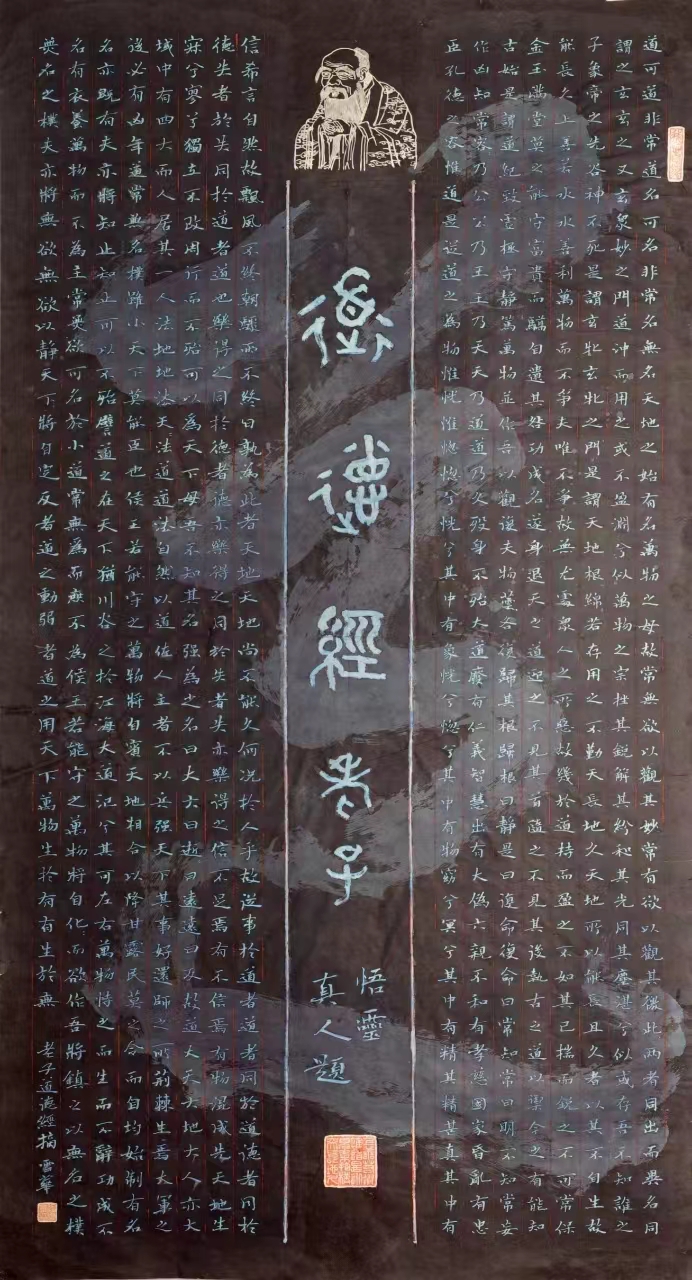 道可道非常道名可名非常名無名天地之始有名萬物之母故常無欲以觀其妙常有欲以觀其徼此兩者同出而異名同
謂之玄玄之又玄眾妙之門道沖而用之或不盈淵兮似萬物之宗挫其銳解其紛和其光同其塵湛兮似或存吾不知誰之
子象帝之先谷神不死是謂玄牝玄牝之門是謂天地根綿若存用之不勤天長地久天地所以能長且久者以其不自生故
能長久上善若水水善利萬物而不爭夫唯不爭故無尤處眾人之所惡故幾於道持而盈之不如其已揣而銳之不可常保
金玉滿堂莫之能守富貴而驕自遺其咎功成名遂身退天之道迎之不見其首隨之不見其後執古之道以禦今之有能知
古始是謂道紀致虛極守靜篤萬物並作吾以觀復夫物蕓各復歸其根歸根曰靜是曰復命復命曰常知常曰明不知常妄
作凶知常容乃公公乃王王乃天天乃道道乃久歿身不殆大道廢有仁義智慧出有大偽六親不和有孝慈國家昏亂有忠
臣孔德之容惟道是從道之為物惟恍惟惚惚兮恍兮其中有象恍兮惚兮其中有物窈兮冥兮其中有精其精甚真其中有
道德經老子
悟靈
真人題
信希言自然故飄風不終朝驟雨不終日孰為此者天地天地尚不能久何況於人乎故從事於道者道者同於道德者同於
德失者於失同於道者道也樂得之同於德者德亦樂得之同於失者失亦樂得之信不足焉有不信焉有物混成先天地生
寂兮寥兮獨立不改周行而不殆可以為天下母吾不知其名强為之名曰大大曰逝曰遠遠曰反故道大天大地大人亦大
域中有四大而人居其一人法地地法天法道道法自然以道佐人主者不以兵强天下其事好還師之所荊棘生焉大軍之
後必有凶年道常無名樸雖小天下莫能臣也侯王若能守之萬物將自賓天地相合以降甘露民莫之令而自均始制有名
名亦既有夫亦將知止知止可以不殆譬道之在天下猶川谷之於江海大道氾兮其可左右萬物恃之而生而不辭功成不
名有衣養萬物而不為主常無欲可名於小道常無為而無不為侯王若能守之萬物將自化而欲作吾將鎮之以無名之樸
無名之樸夫亦將無欲無欲以靜天下將自定反者道之動弱者道之用天下萬物生於有有生於無 老子道德經摘